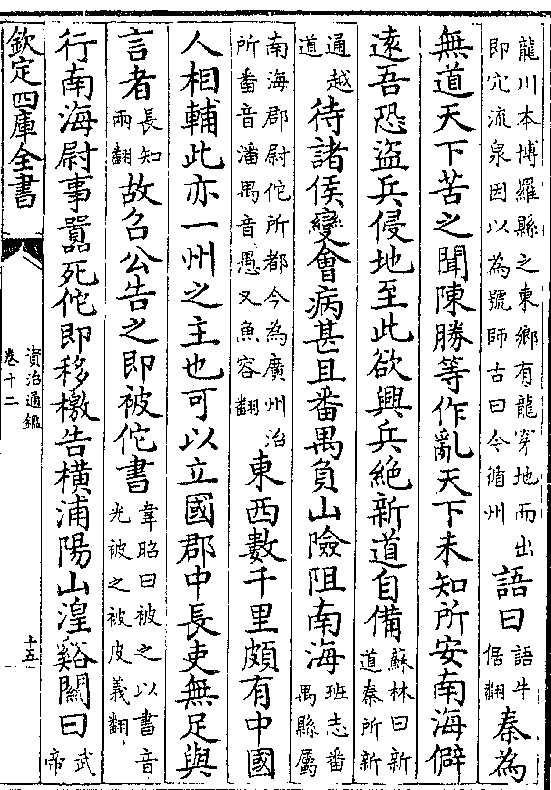 龍川本博羅縣之東鄉有龍穿地而出
即穴流泉因以為號師古曰今循州
語曰
語牛
倨翻
秦為
無道天下苦之聞陳勝等作亂天下未知所安南海僻
遠吾恐盜兵侵地至此欲興兵絕新道自備
蘇林曰新
道秦所新
通越
道
待諸侯變會病甚且番禺負山險阻南海
班志番
禺縣屬
南海郡尉佗所都今為廣州治
所番音潘禺音愚又魚容翻
東西數千里頗有中國
人相輔此亦一州之主也可以立國郡中長吏無足與
言者
長知
兩翻
故召公告之即被佗書
韋昭曰被之以書音
光被之被皮義翻
行南海尉事囂死佗即移檄告橫浦陽山湟谿關曰
武
帝
欽定四庫全書
資治通鑑
卷十二
十五